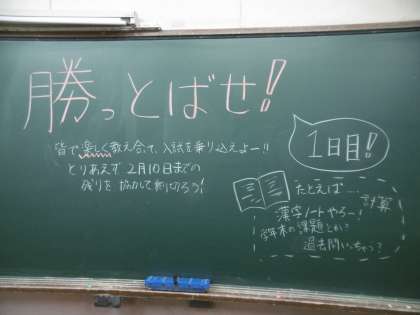 勝っとばせ!!
皆で楽しく教え合って、入試を乗り込えよー!!
とりあえず 2月10日までの
残りを 協力して乗り切ろう!
1日目!!
たとえば…
計算
漢字ノートやろー!
学年末の課題とか?
過去問いっちゃう?